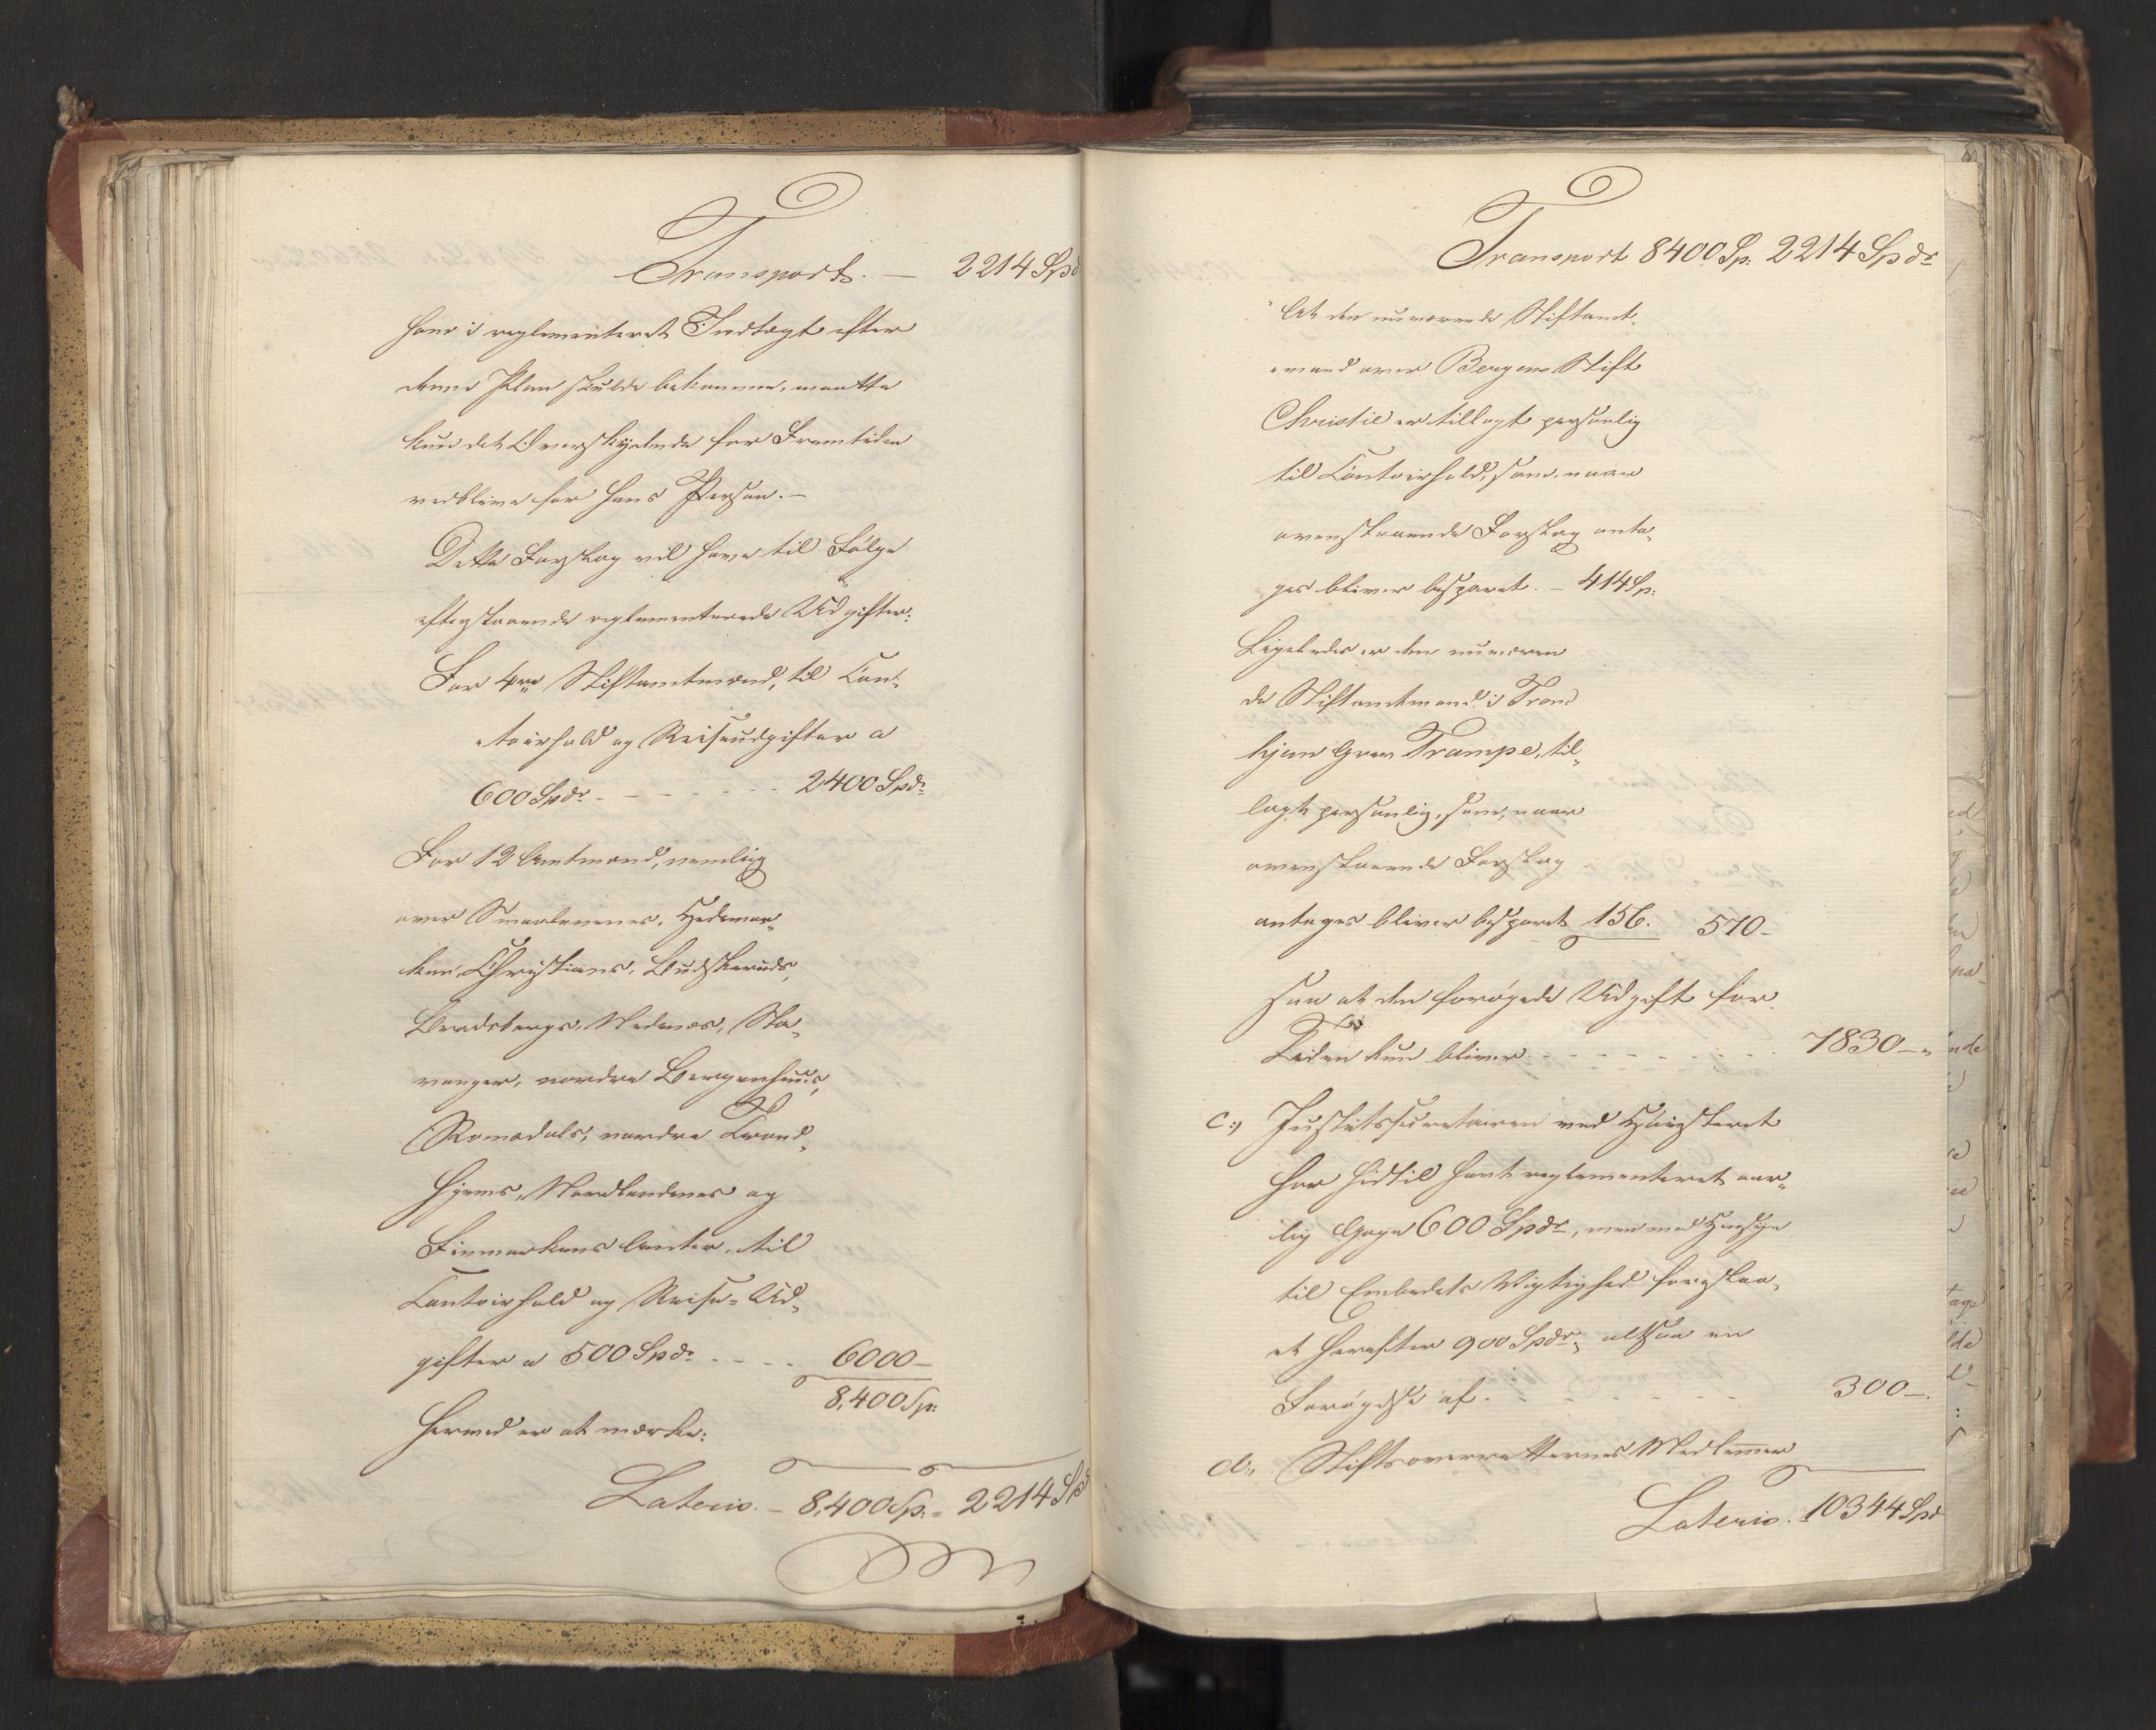 Transport. — 2214 Spd
han i reglementeret Indtægt efter
denne Plan skulde bekomme, maatte
kun det Overskydende for Fremtiden
vedblive for hans Person. —
Dette Forslag vil have til Følge
efterstaaende reglementerede Udgifter:
For 4re Stiftamtmænd, til Con-
toirhold og Reiseudgifter a
600 Spdr - - - - - - - 2400 Spdr
For 12 Amtmænd, nemlig
over Smaalenenes, Hedemar-
kens, Christians, Budskeruds,
Bradsbergs, Nedenæs, Sta-
vanger, nordre Bergenhuus,
Romsdals, nordre Trond-
hjems, Nordlandenes og
Finmarkens Amter, til
Contoirhold og Reise-Ud-
gifter a 500 Spdr. . . . . 6000 —
8,400 Sp:
Herved er at mærke:
Lateris. — 8,400 Sp: - 2214 Spd
Transport 8400 Sp: 2214 Spdr
At den nuværende Stiftamt-
mand over Bergens Stift
Christie er tillagt personlig
til Contoirhold, som, naar
ovenstaaende Forslag anta-
ges bliver besparet. — 414 Sp:
Ligeledes er den nuværen
de Stiftamtmand i Trond
hjem Grev Trampe, til-
lagt personlig, som, naar
ovenstaaende Forslag
antages bliver besparet 156. 570 -
saa at den forøgede Udgift for
Tiden kun bliver - - - - - - - - 7830 — "
c:) Justitssecretairen ved Høiesteret
har hidtil havt reglementeret aar-
lig Gage 600 Spdr, men med Hensyn
til Embedets Vigtighed foreslaa-
et herefter 900 Spdr, altsaa en
Forøgelse af - - - - - - 300 —.
d:, Stiftsoverretternes Medlemmer
Lateris. 10344 Spd